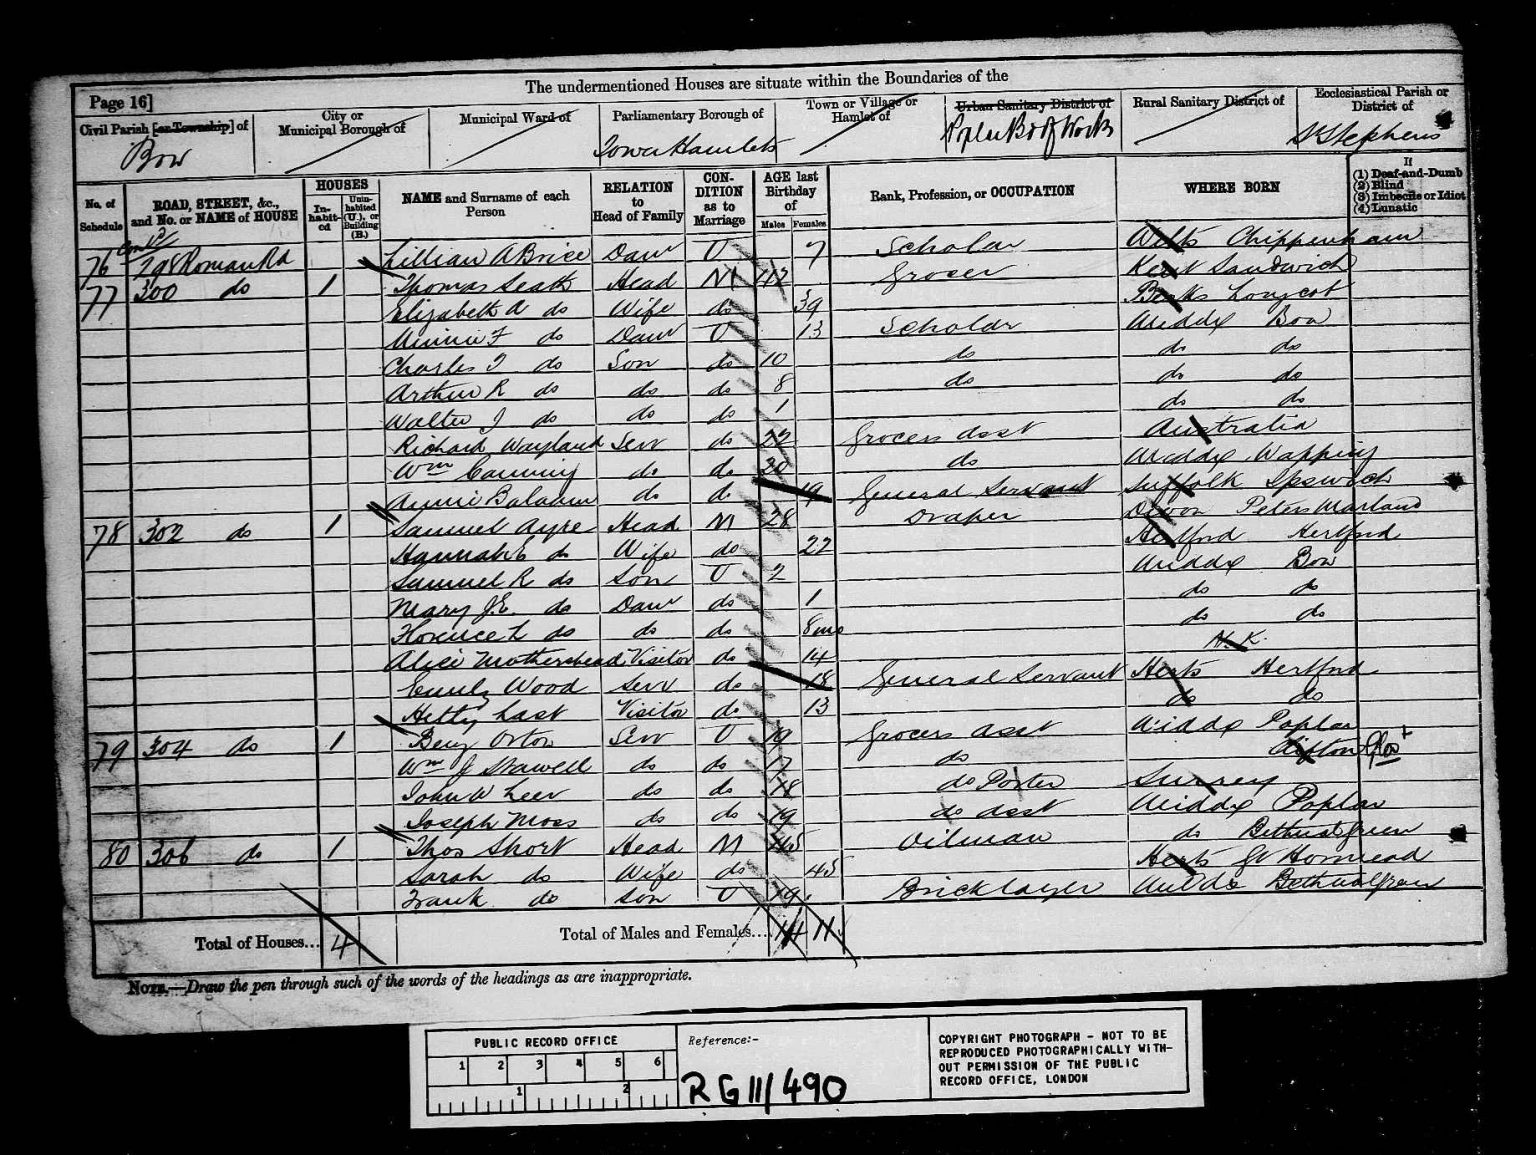 The undermentioned Houses are situate within the Boundaries of the
Page 16]
Civil Parish [or Township] of
Bow
City or Municipal Borough of
Municipal Ward of
Parliamentary Borough of
Tower Hamlets
Town or Village or Hamlet of
Urban Sanitary District of
Poplar Bd of Works
Rural Sanitary District of
Ecclesiastical Parish or District of
St Stephens
No. of Schedule
ROAD, STREET, &c., and No. or NAME of HOUSE
HOUSES
Inhabited
Uninhabited (U.), or Building (B.)
NAME and Surname of each Person
RELATION to Head of Family
CONDITION as to Marriage
AGE last Birthday of
Males
Females
Rank, Profession, or OCCUPATION
WHERE BORN
If
(1) Deaf-and-Dumb
(2) Blind
(3) Imbecile or Idiot
(4) Lunatic
76 Contd 298 Roman Rd Lillian A Brice Daur U 7 Scholar Wilts Chippenham
77 300 do 1 Thomas Leath Head M 42 Grocer Kent Sandwich
Elizabeth A do Wife do 39 Berks Longcot
Minnie F do Daur U 13 Scholar Middx Bow
Charles T do Son do 10 do do do
Arthur R do do do 8 do do do
Walter J do do do 1 do do
Richard Wayland Serv do 22 Grocers Asst Australia
Wm Canning do do 20 do Middx Wapping
Annie Balaam do do 19 General Servant Suffolk Ipswich
78 302 do 1 Samuel Ayre Head M 28 Draper Devon Peters Marland
Hannah do Wife do 22 Hertford Hertford
Samuel R do Son U 2 Middx Bow
Mary J.E. do Daur do 1 do do
Florence L do do do 8mo do do
Alice Mothersbead Visitor do 14 N.K.
Emily Wood Serv do 18 General Servant Herts Hertford
Hetty Last Visitor do 13 do do
79 304 do 1 Benj Orton Serv U 19 Grocers Asst Middx Poplar
Wm J Stawell do do 17 do Clifton Glos
John W Leer do do 18 do Porter Surrey
Joseph Moss do do 19 do Asst Middx Poplar
80 306 do 1 Thos Short Head M 45 Oilman do Bethnal Green
Sarah do Wife do 45 Herts Gt Hormead
Frank do Son U 19 Bricklayer Middx Bethnal Green
Total of Houses... 4
Total of Males and Females... 14 11
NOTE.—Draw the pen through such of the words of the headings as are inappropriate.
PUBLIC RECORD OFFICE
1 2 3 4 5 6
1 2
Reference:-
RG 11/490
COPYRIGHT PHOTOGRAPH - NOT TO BE
REPRODUCED PHOTOGRAPHICALLY WITH-
OUT PERMISSION OF THE PUBLIC
RECORD OFFICE, LONDON